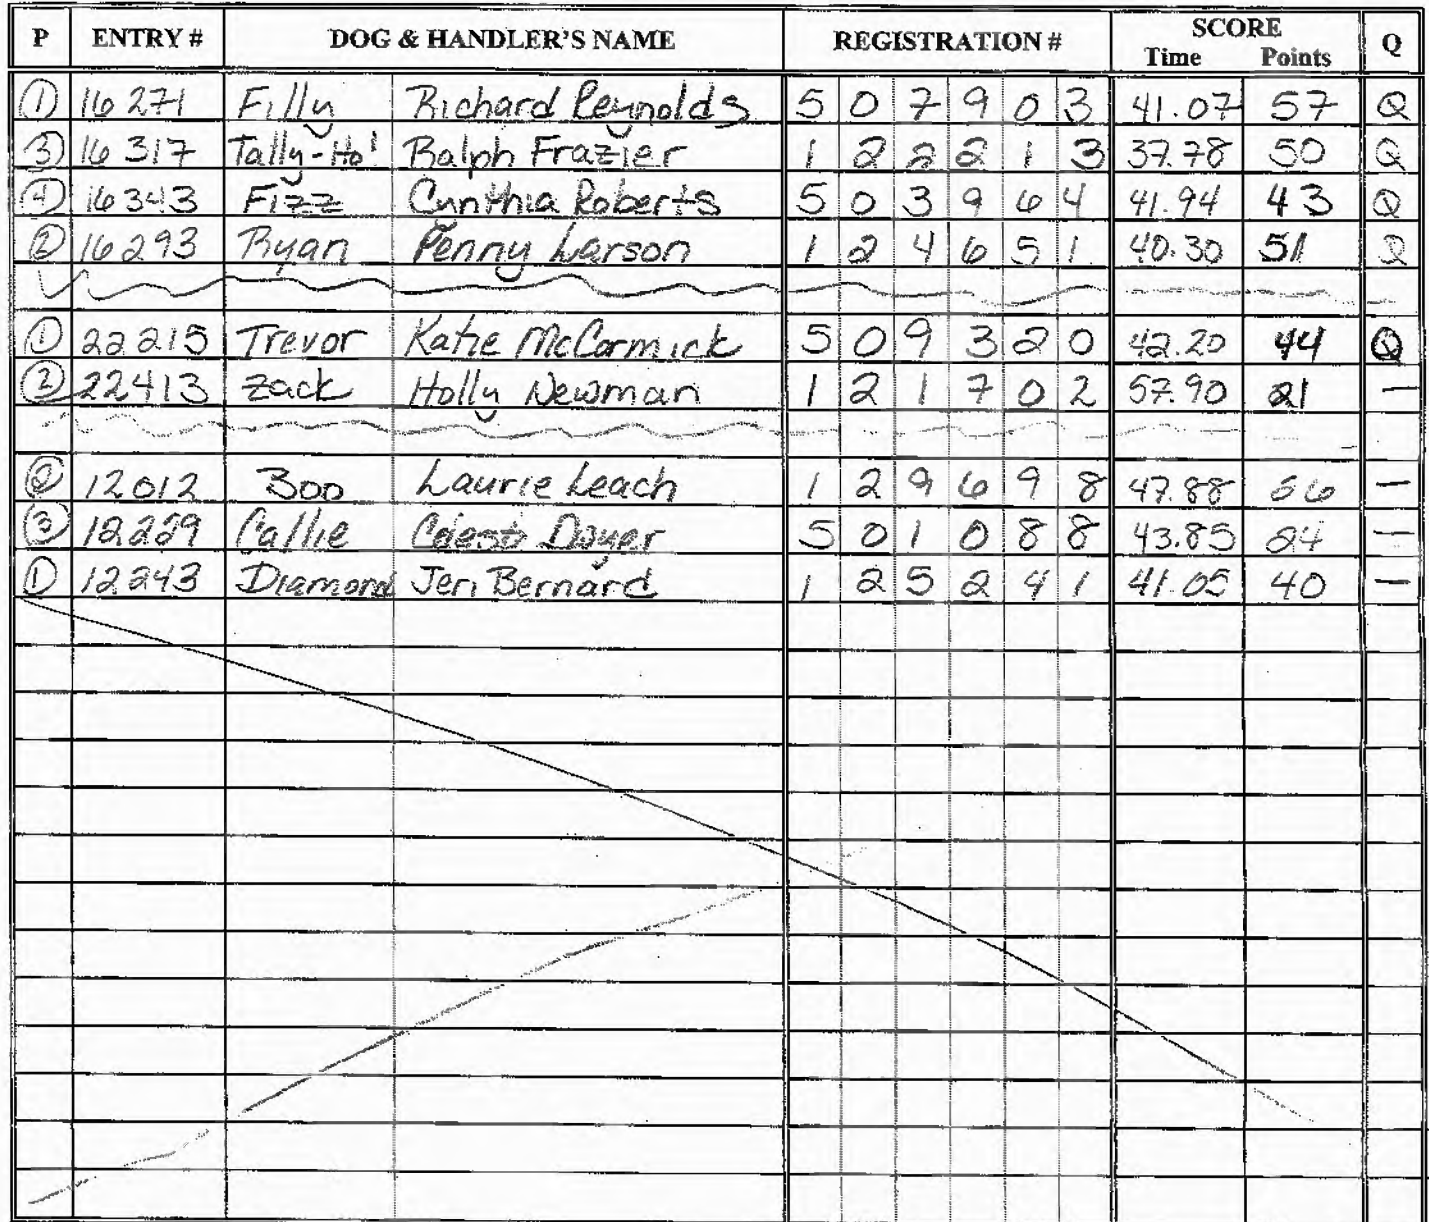 P ENTRY # DOG & HANDLER'S NAME REGISTRATION # SCORE Time Points Q
① 16271 Filly Richard Reynolds 5 0 7 9 0 3 41.07 57 Q
③ 16317 Tally-Ho! Ralph Frazier 1 2 2 2 1 3 37.78 50 Q
④ 16343 Fizz Cynthia Roberts 5 0 3 9 6 4 41.94 43 Q
② 16293 Ryan Penny Larson 1 2 4 6 5 1 40.30 51 Q
① 22215 Trevor Katie McCormick 5 0 9 3 2 0 42.20 44 Q
② 22413 Zack Holly Newman 1 2 1 7 0 2 57.90 21 —
② 12012 Boo Laurie Leach 1 2 9 6 9 8 47.88 —
③ 12229 Callie 5 0 1 0 8 8 43.85 24 —
① 12243 Diamond Jeri Bernard 1 2 5 2 4 1 41.05 40 —